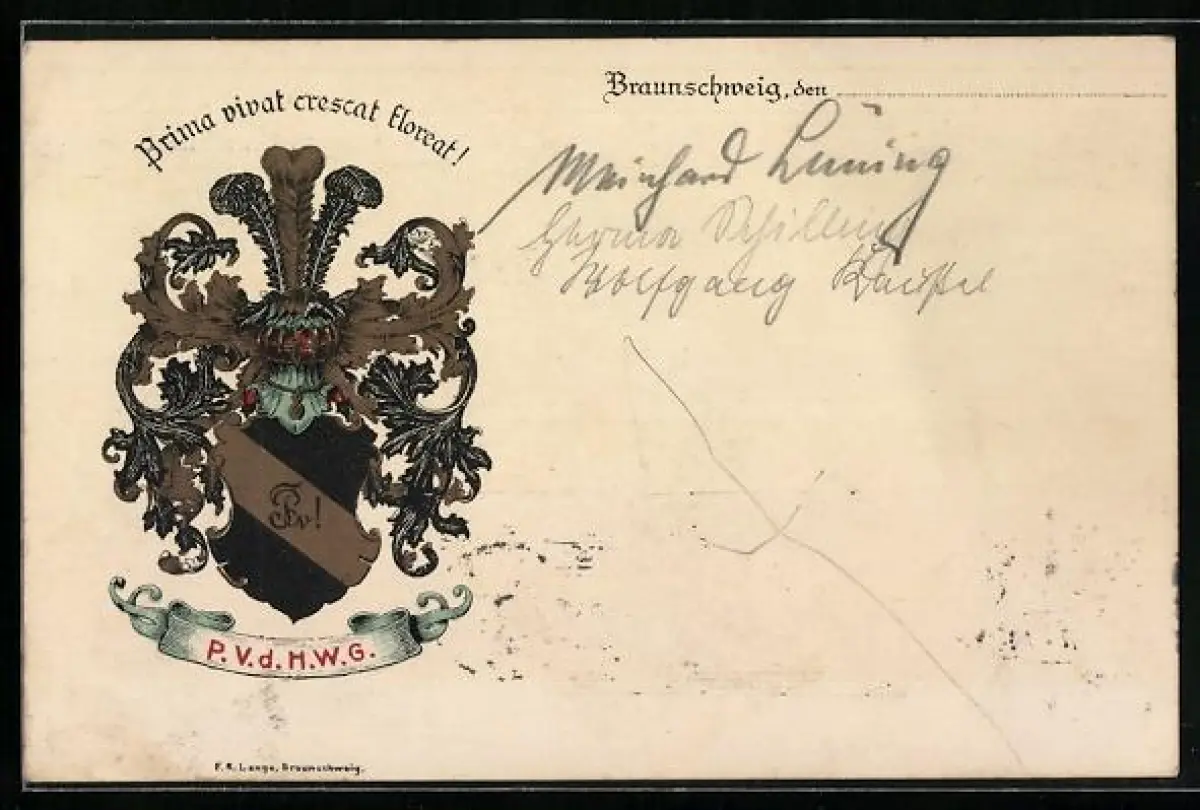 Prima vivat crescat floreat!
Braunschweig, den
Meinhard Lüning
Schilling
Wolfgang
v!
P.V.d.H.W.G.
F. K. Lange, Braunschweig.